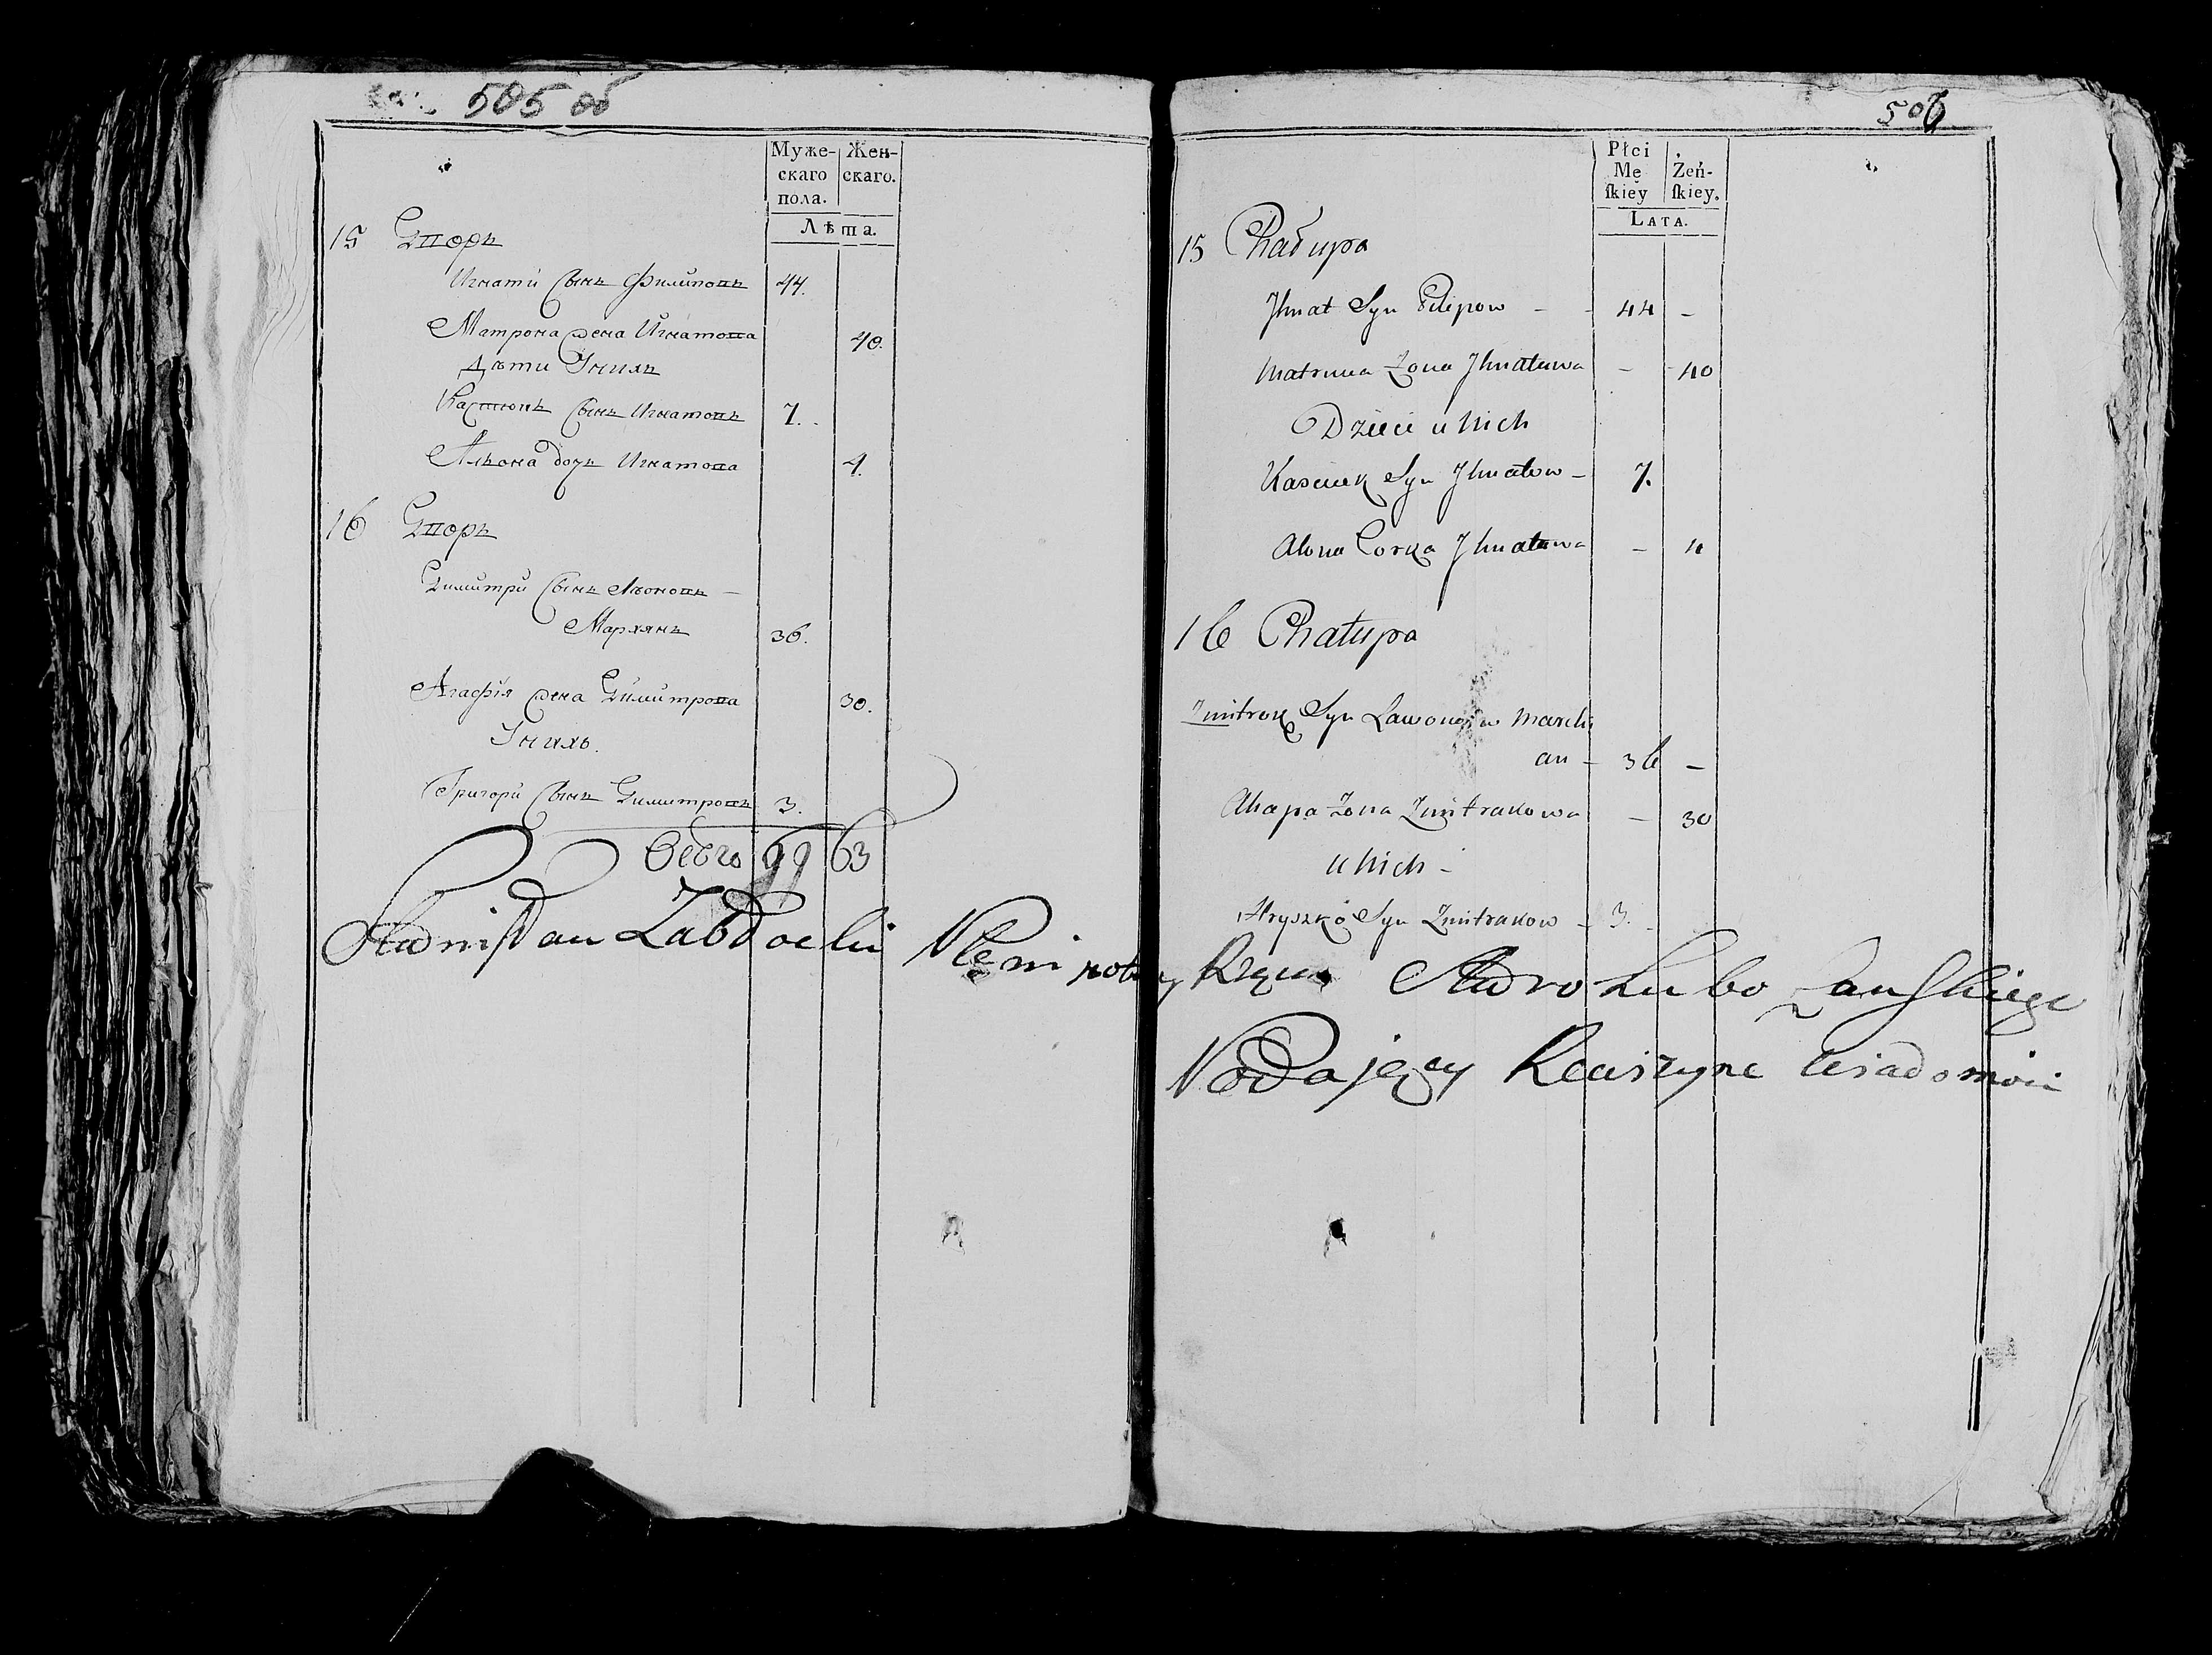 505 об
Муже- Жен-
скаго скаго.
пола.
Лѣта.
15 Дворъ
Игнатй Сынъ Филиповъ 44.
Матрона жена Игнатова 40.
Дѣти Унихъ
Кастюкъ Сынъ Игнатовъ 7.
Алѣона дочь Игнатова 4.
16 Дворъ
Димитрй Сынъ Лѣоновъ —
Мархянъ 36.
Агафія жена Димитрова 30.
Унихъ.
Григорй Сынъ Димитровъ 3.
99 63
506
Płci Żeń-
Mę ſkiey.
ſkiey
LATA.
15 Chałupa
Jhnat Syn Pilipow — 44 —
Matruna Żona Jhnatowa — 40
Dzieci u Nich
Kasciuk Syn Jhnatow — 7.
Alona Corka Jhnatowa — 4
16 Chałupa
Zmitrok Syn Lawonow March
an — 36 —
Ahapa Żona Zmitrakowa — 30
u Nich —
Hryszko Syn Zmitrakow — 3.